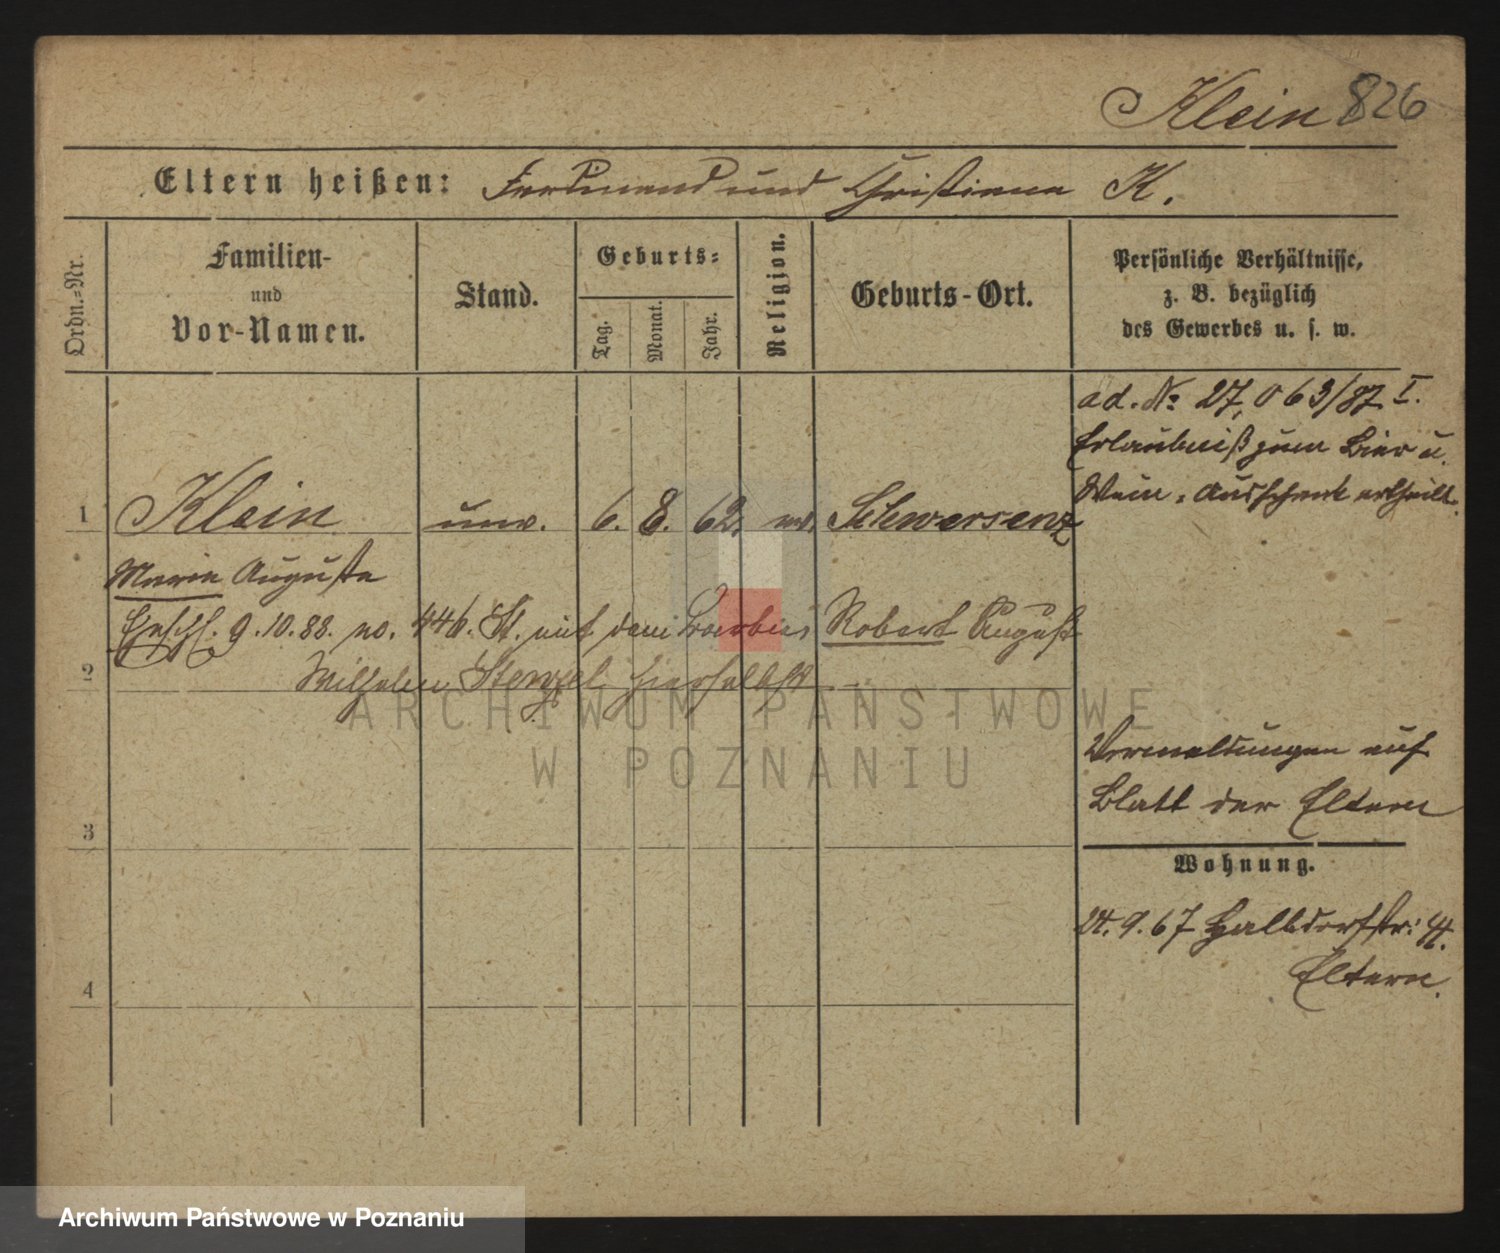 Klein 826
Eltern heißen: Ferdinand und Christiana K.
Ordn.-Nr.
Familien-
und
Vor-Namen.
Stand.
Geburts-
Tag.
Monat.
Jahr.
Religion.
Geburts-Ort.
Persönliche Verhältnisse,
z. B. bezüglich
des Gewerbes u. s. w.
ad. No 27,063/87. I.
Erlaubniß zum Bier u.
Wein-Ausschank ertheilt.
1 Klein unv. 6. 8. 62. ev. Schwersenz
Marie Auguste
Eheschl. 9.10.88. no. 446. St. mit dem Barbier Robert August
2 Wilhelm Stenzel hierselbst
ARCHIWUM PAŃSTWOWE
W POZNANIU
Vermeldungen auf
Blatt der Eltern
3
Wohnung.
24.9.67 Halbdorfstr: 4.
Eltern.
4
Archiwum Państwowe w Poznaniu